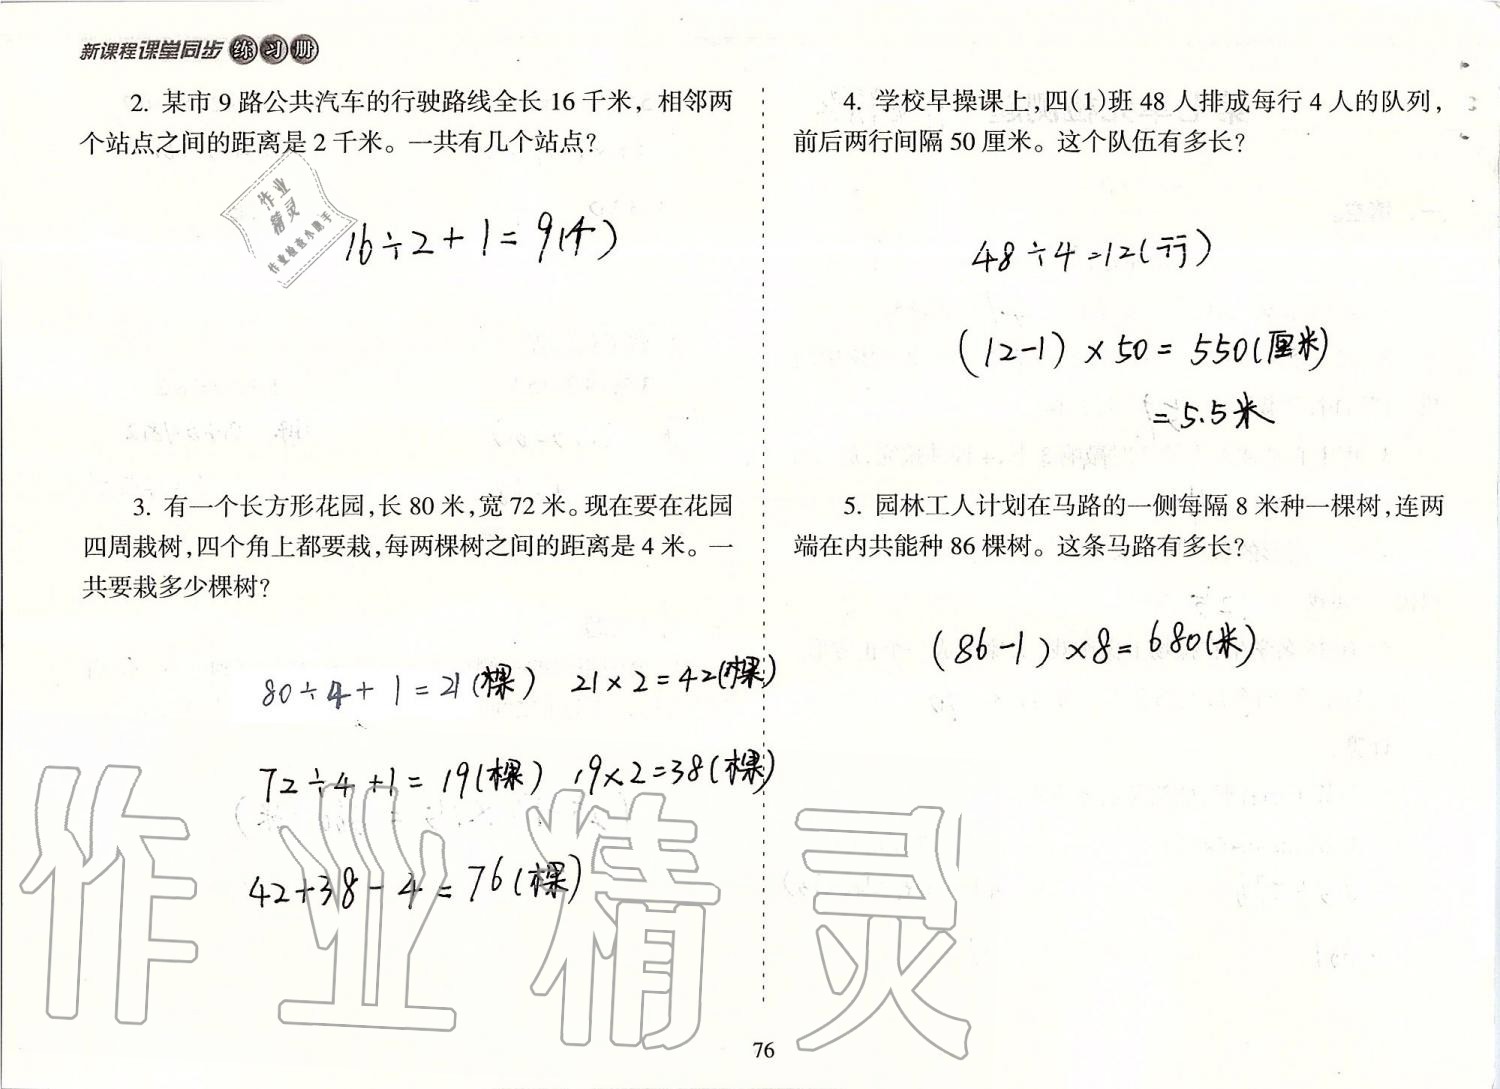 新课程课堂同步练习册
2. 某市 9 路公共汽车的行驶路线全长 16 千米，相邻两
个站点之间的距离是 2 千米。一共有几个站点?
作业
精灵
作业检查小助手
16÷2+1=9(个)
3. 有一个长方形花园,长 80 米,宽 72 米。现在要在花园
四周栽树,四个角上都要栽,每两棵树之间的距离是 4 米。一
共要栽多少棵树?
80÷4+1=21(棵) 21×2=42(棵)
72÷4+1=19(棵) 19×2=38(棵)
42+38-4=76(棵)
4. 学校早操课上,四(1)班 48 人排成每行 4 人的队列,
前后两行间隔 50 厘米。这个队伍有多长?
48÷4=12(行)
(12-1)×50=550(厘米)
=5.5米
5. 园林工人计划在马路的一侧每隔 8 米种一棵树,连两
端在内共能种 86 棵树。这条马路有多长?
(86-1)×8=680(米)
作业精灵
76